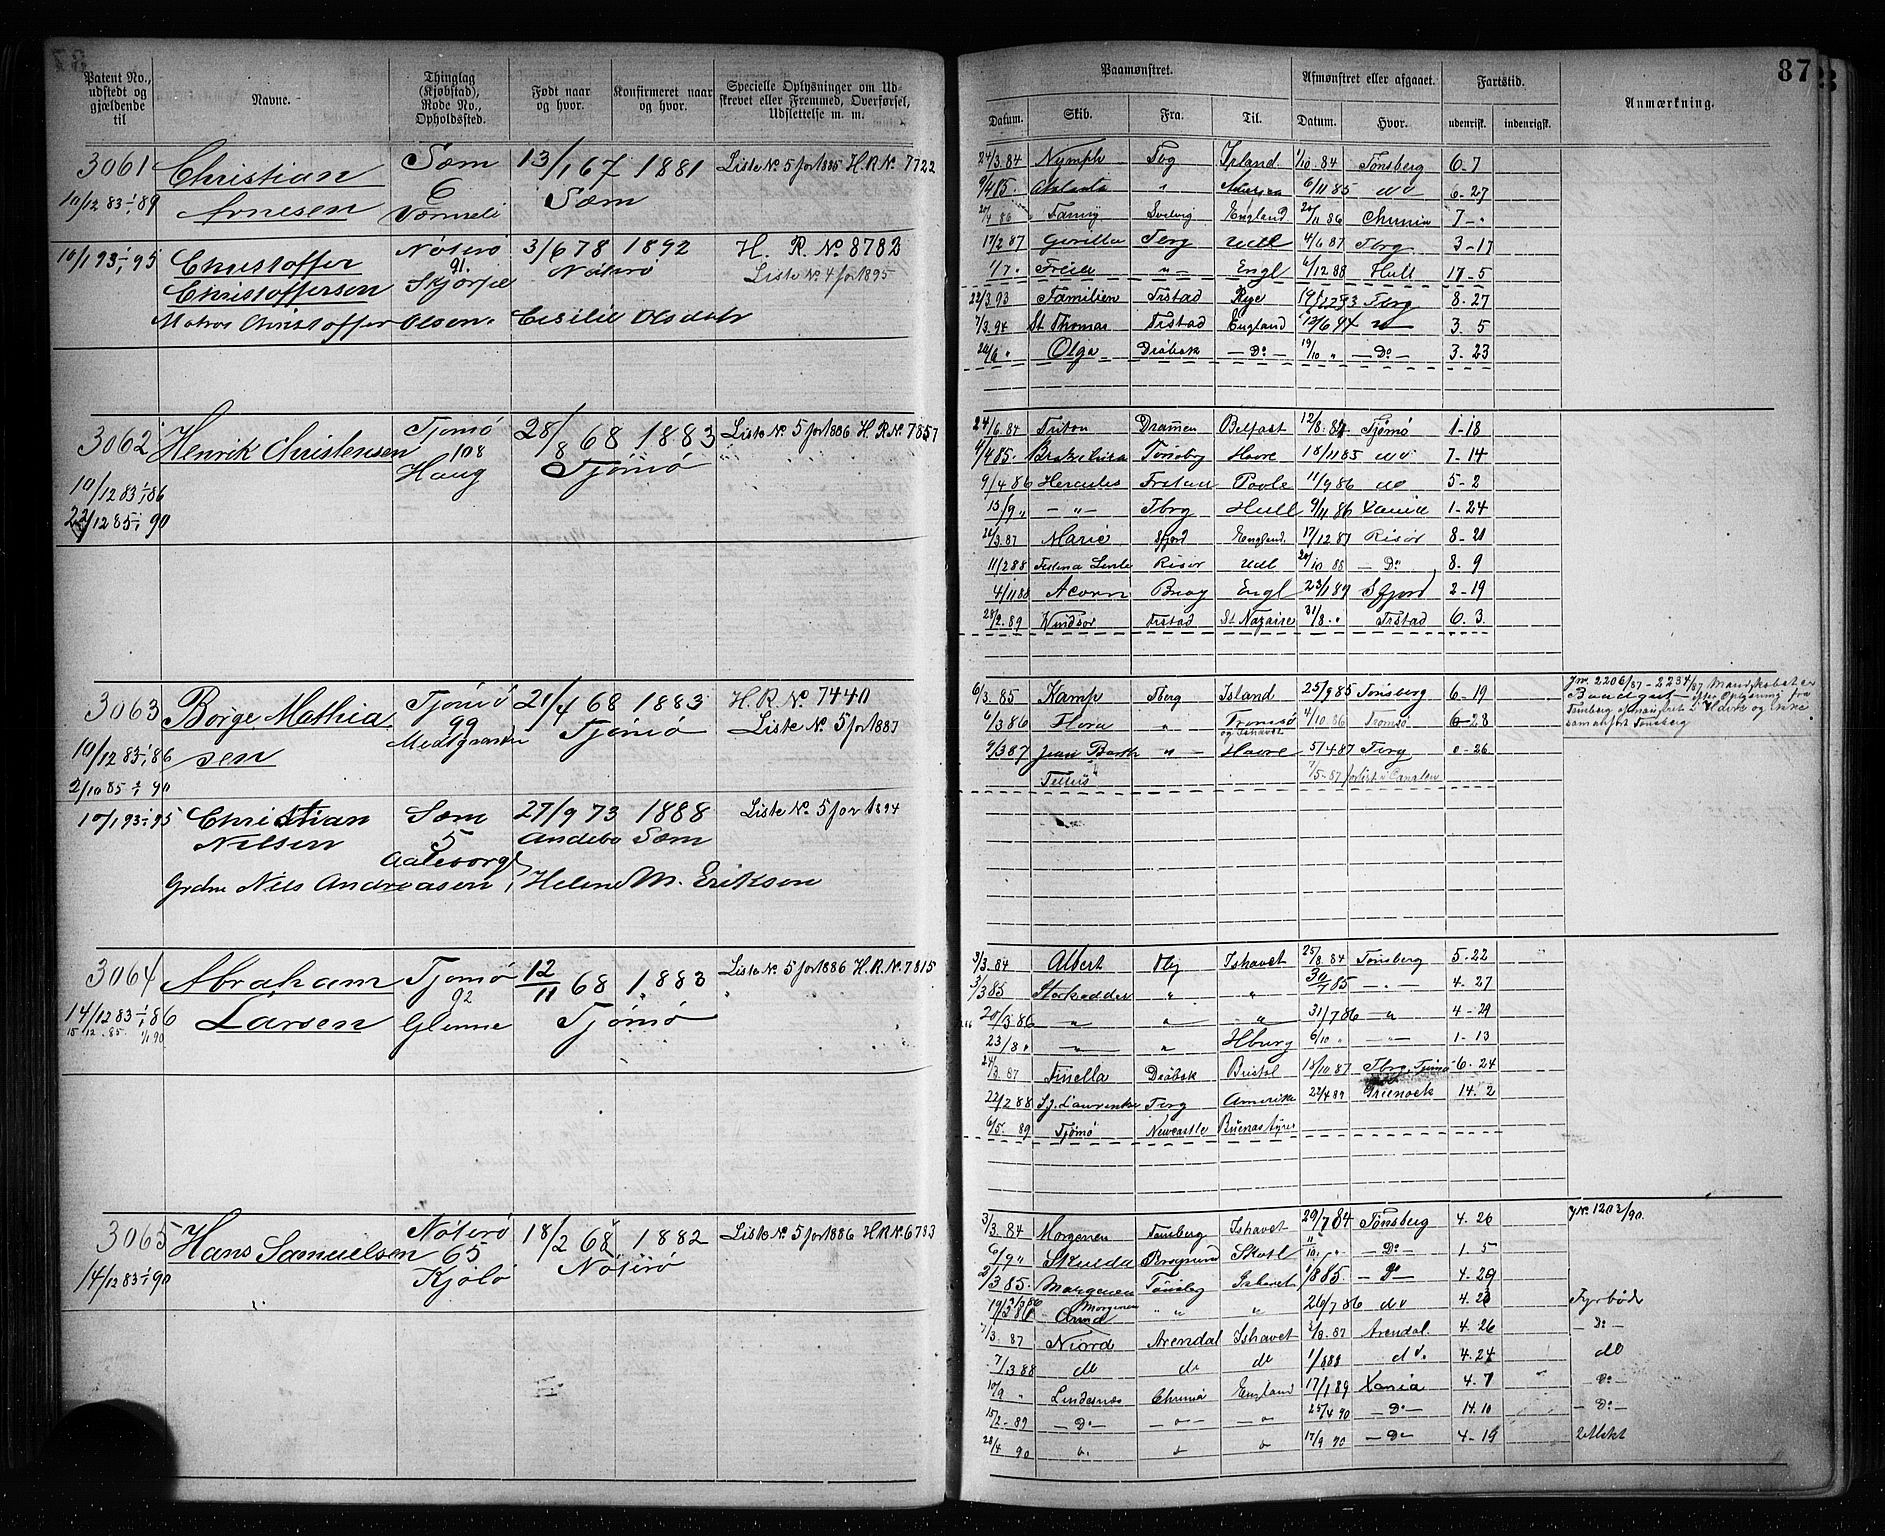 Patent No., udstedt og gjældende til
Navne.
Thinglag (Kjøbstad), Rode No., Opholdssted.
Født naar og hvor.
Konfirmeret naar og hvor.
Specielle Oplysninger om Udskrevet eller Fremmed, Overførsel, Udslettelse m. m.
3061 Christian Sæm 13/1 67 1881 Liste No. 5 for 1885 H.R.No. 7722
10/12 83 1/1 89 Arnesen 6 Sæm
10/1 93 1/1 95 Christoffer Nøterø 3/6 78 1892 H. R. No 8783
Christoffersen 91. Nøterø Liste No. 4 for 1895
Matros Christoffer Olsen. Cecilie Olsdatr
3062 Henrik Christensen Tjømø 28/8 68 1883 Liste No. 5 for 1886 H.R.No 7857
108 Tjømø
10/12 83 1/1 86 Haug
22/12 85 1/1 90
3063 Børge Mathia Tjømø 21/4 68 1883 H.R.No. 7440
99 Tjømø Liste No. 5 for 1887
10/12 83 1/1 86 sen
2/10 85 1/1 90
10/1 93 1/1 95 Christian Sæm 27/9 73 1888 Liste No. 5 for 1894
Nilsen 5 Andebo Sæm
Nils Andreasen, Helene M. Eriksen
3064 Abraham Tjømø 12/11 68 1883 Liste No. 5 for 1886 H.R.No. 7815
92
14/12 83 1/1 86 Larsen Glenne Tjømø
15/12 85 1/1 90
3065 Hans Samuelsen Nøterø 18/2 68 1882 Liste No. 5 for 1886 H.R.No. 6733
65 Nøterø
14/12 83 1/1 90 Kjøló
87
Paamønstret.
Afmønstret eller afgaaet.
Fartstid.
Anmærkning.
Datum. Skib. Fra. Til. Datum. Hvor. udenrigsk. indenrigsk.
24/3.84 Nymph Tbg Irland 1/10.84 Tønsberg 6.7
9/4 85. Atalanta " 6/11 85 do 6-27
20/4 86 Svelvig England 20/11.86 Chrania 7-"
17/2 87 Gorilla Tbrg Hull 4/6 87 Tbrg 3-17
1/7. Freia " Engl 6/12 88 Hull 17-5
22/3.93 Familien Frstad Rye 19/12 93 Tbrg 8.27
7/3.94 St Thomas Frstad England 12/6 94 " 3.5
20/6 " Olga Drøbak — Do — 19/10 " — Do — 3-23
24/6.84 Triton Dramen Belfast 12/8.84 Tjømø 1-18
4/4 85. Tønsbrg Havre 18/11 85 do 7-14
9/4 86 Hercules Frstad Poole 11/9 86 do 5-2
13/9 " — " — Tbrg Hull 9/11 86 Xania 1-24
21/3.87 Marie Sfjord England. 17/12 87 Risør 8-21
11/2 88 Risør Hull 20/10 88 — Do 8.9
4/11 88 Acorn Engl 23/1 89 Sfjord 2-19
28/2.89 Windsor Frstad St Nazaire 31/8." Frstad 6.3.
6/3.85 Kamp Tberg Island 25/9 85 Tønsberg 6-19
6/3 86 Flora " Tromsø og Ishavet 4/10.86 Tromsø 6-28
9/3 87 Jean Barth " Havre 5/4 87 Tbrg "-26
Tellus 1/5-87 forlist i Canalen
Jnr. 2206/87 - 2234/87
3/3.84 Albert Ishavet 25/8.84 Tønsberg 5.22
3/3 85 Stockadder " " 30/7 85 — " — 4.27
20/3.86 " " " 31/7 86 " 4-29
23/8 " — " — " Hburg 6/10 " — " — 1-13
24/3.87 Finella Drøbak Bristol 18/10 87 Tbrg, Tjømø 6.24
22/2 88 Tbrg Amerika 22/4 89 Greenock 14.2
6/5.89 Tjømø Newcastle Buenos Ayres
3/3.84 Morgenen Tønsberg Ishavet 29/7 84 Tønsberg 4.26 J.No. 1203/90.
6/9 " Skulda Skotl 11/10 " — Do — 1.5
2/3 85 Morgenen Tønsbrg Ishavet 1/8 85. — Do — 4-29
Morgenen " " 26/7 86 do 4.23 Fyrbød
7/3.87 Niord Arendal Ishavet 2/8.87 Arendal. 4.26 — Do —
7/3 88 do do do 1/8 88 do. 4.24 do
10/9 " Lindesnæs Chrania England 17/1 89 Xania 4.7 — Do —
15/2-89 — Do — — " — — " 25/4 90 — Do — 14.10 — Do —
28/4 90 " " " 17/9 90 — Do — 4-19